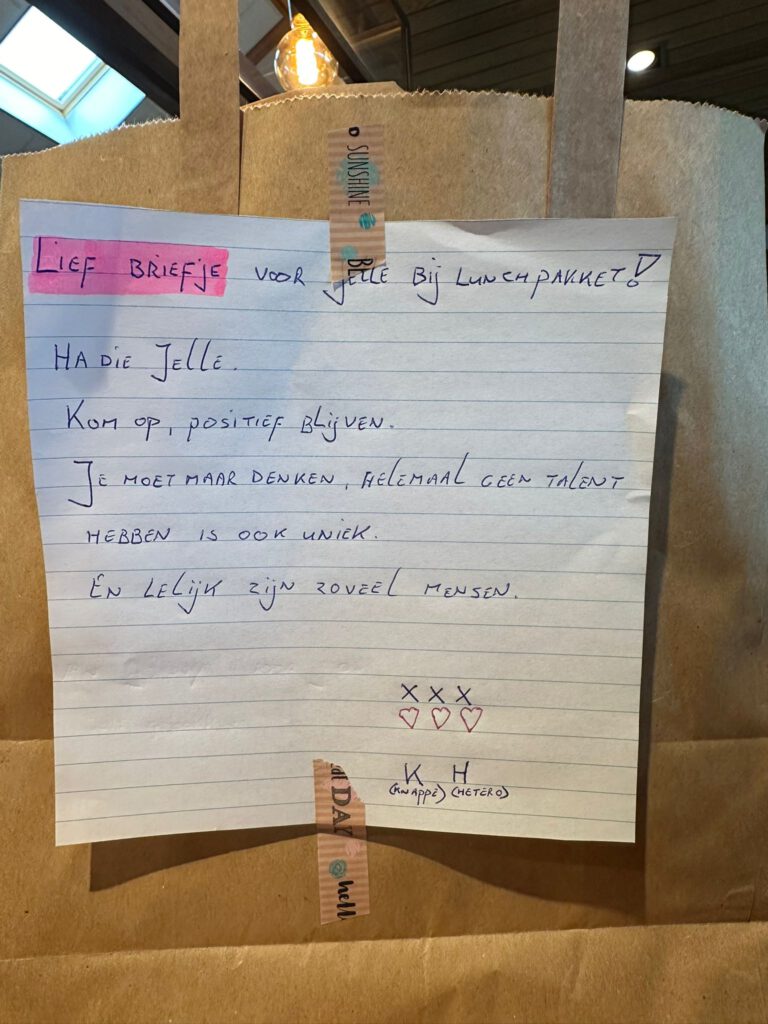 SUNSHINE
LIEF BRIEFJE VOOR JELLE BIJ LUNCHPAKKET!
HA DIE JELLE.
KOM OP, POSITIEF BLIJVEN.
JE MOET MAAR DENKEN, HELEMAAL GEEN TALENT
HEBBEN IS OOK UNIEK.
ÉN LELIJK ZIJN ZOVEEL MENSEN.
X X X
K H
(KNAPPE) (HETERO)
DAY
hell